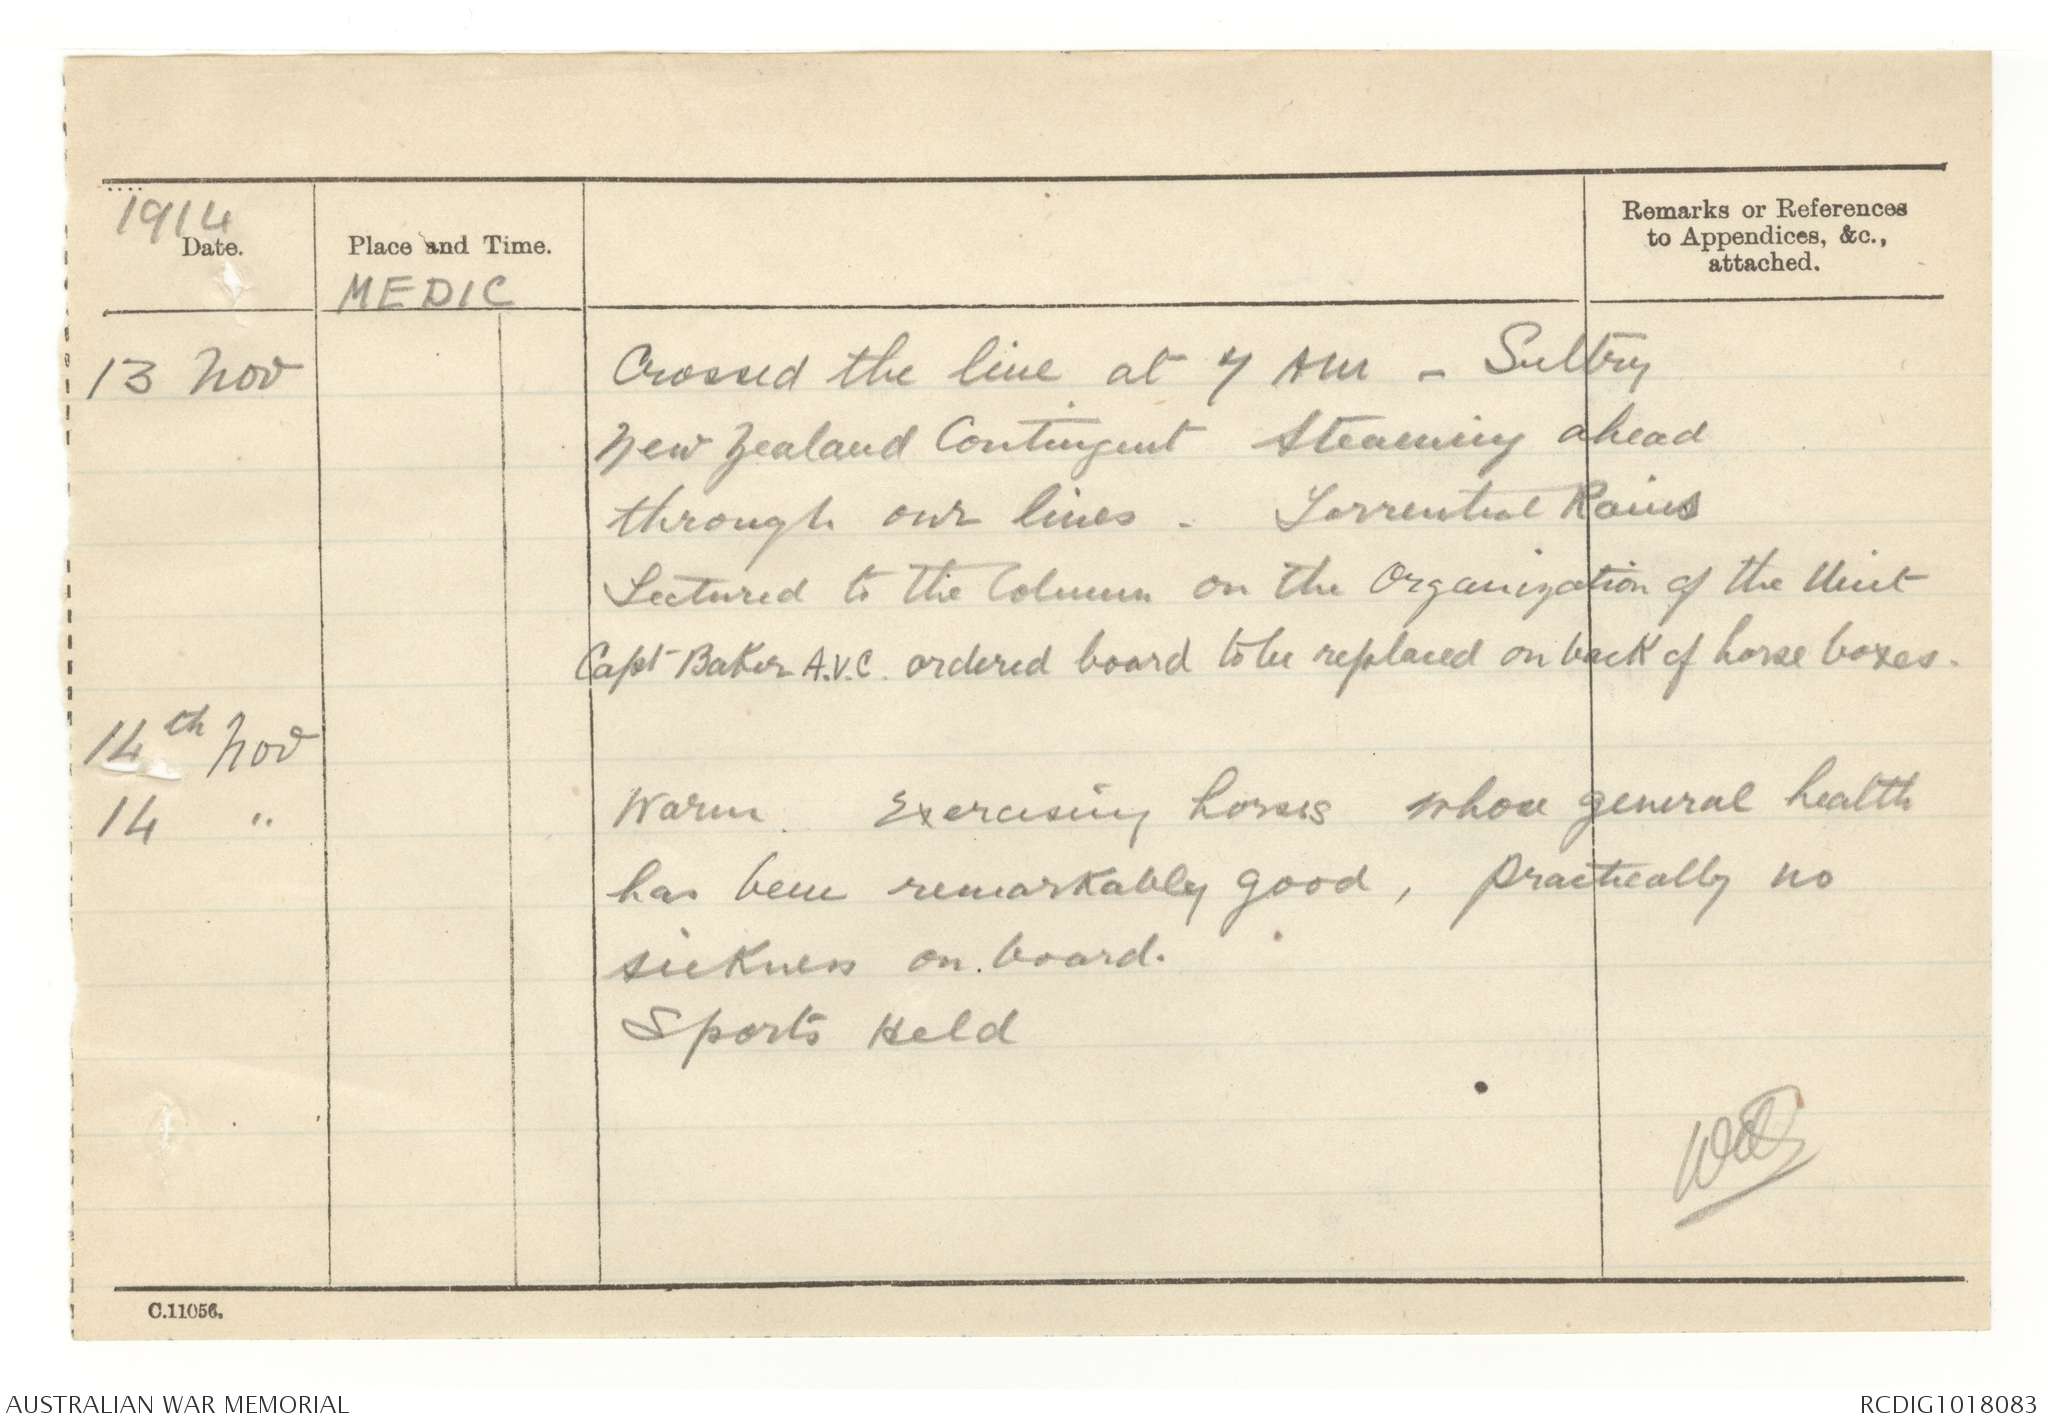 1914
Date.
Place and Time.
MEDIC
Remarks or References
to Appendices, &c.,
attached.
13 Nov
Crossed the line at 7 AM - Sultry
New Zealand Contingent Steaming ahead
through our lines. Torrential Rains
Lectured to the Column on the Organization of the Unit
Capt Baker A.V.C. ordered board to be replaced on back of horse boxes.
14th Nov
14 "
Warm. Exercising horses whose general health
has been remarkably good, practically no
sickness on board.
Sports Held
C.11056.
AUSTRALIAN WAR MEMORIAL
RCDIG1018083